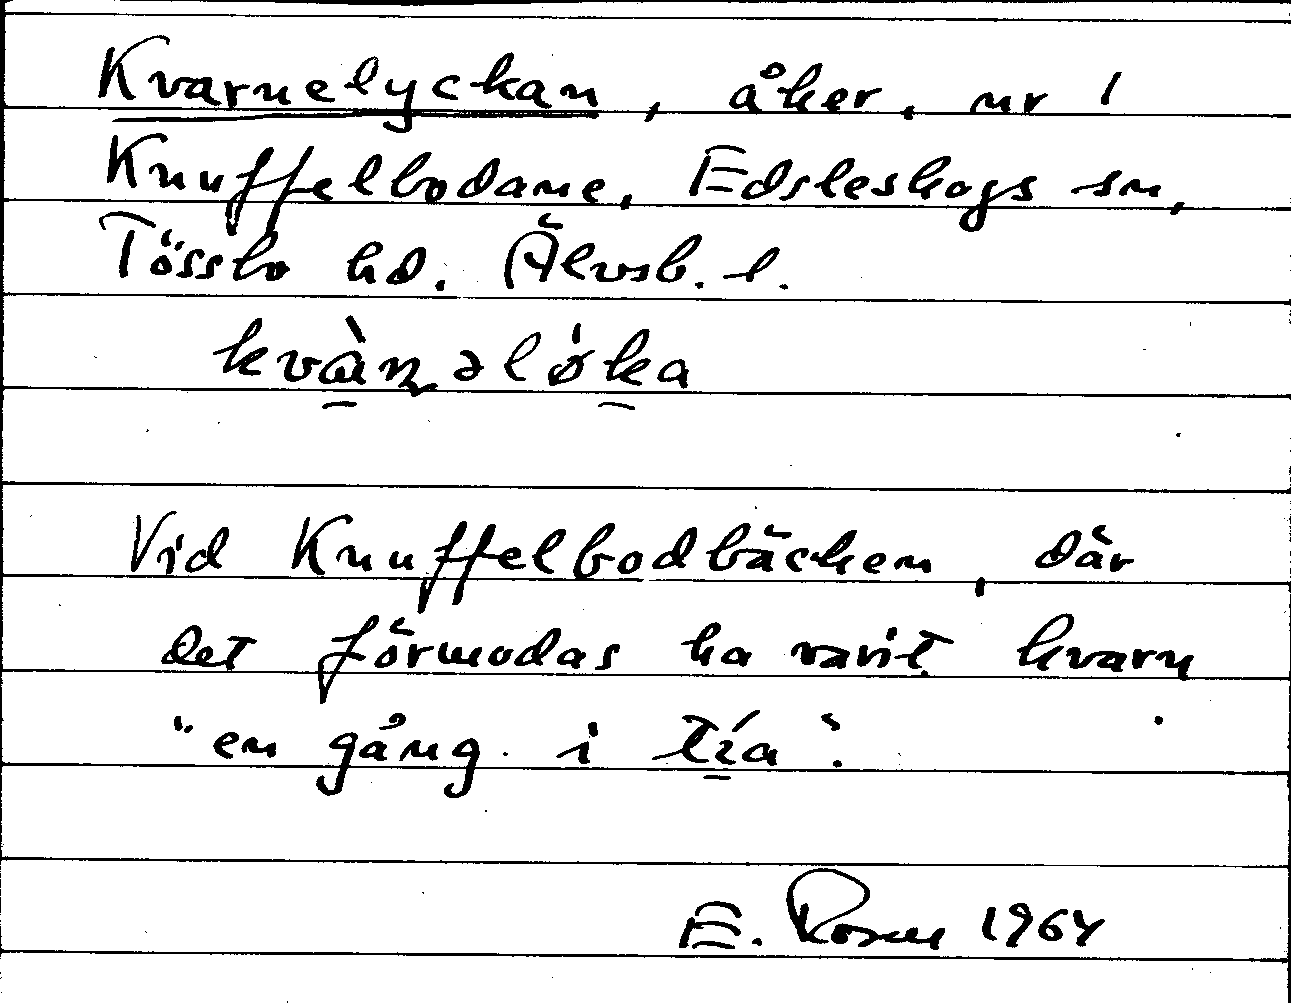 Kvarnelyckan, åker, nr 1
Knuffelbodane, Edsleskogs sn,
Tössbo hd. Älvsb. l.
kvàɳəlø̍ka
Vid Knuffelbodbäcken, där
det förmodas ha varit kvarn
"en gång i tía".
E. Rosen 1964